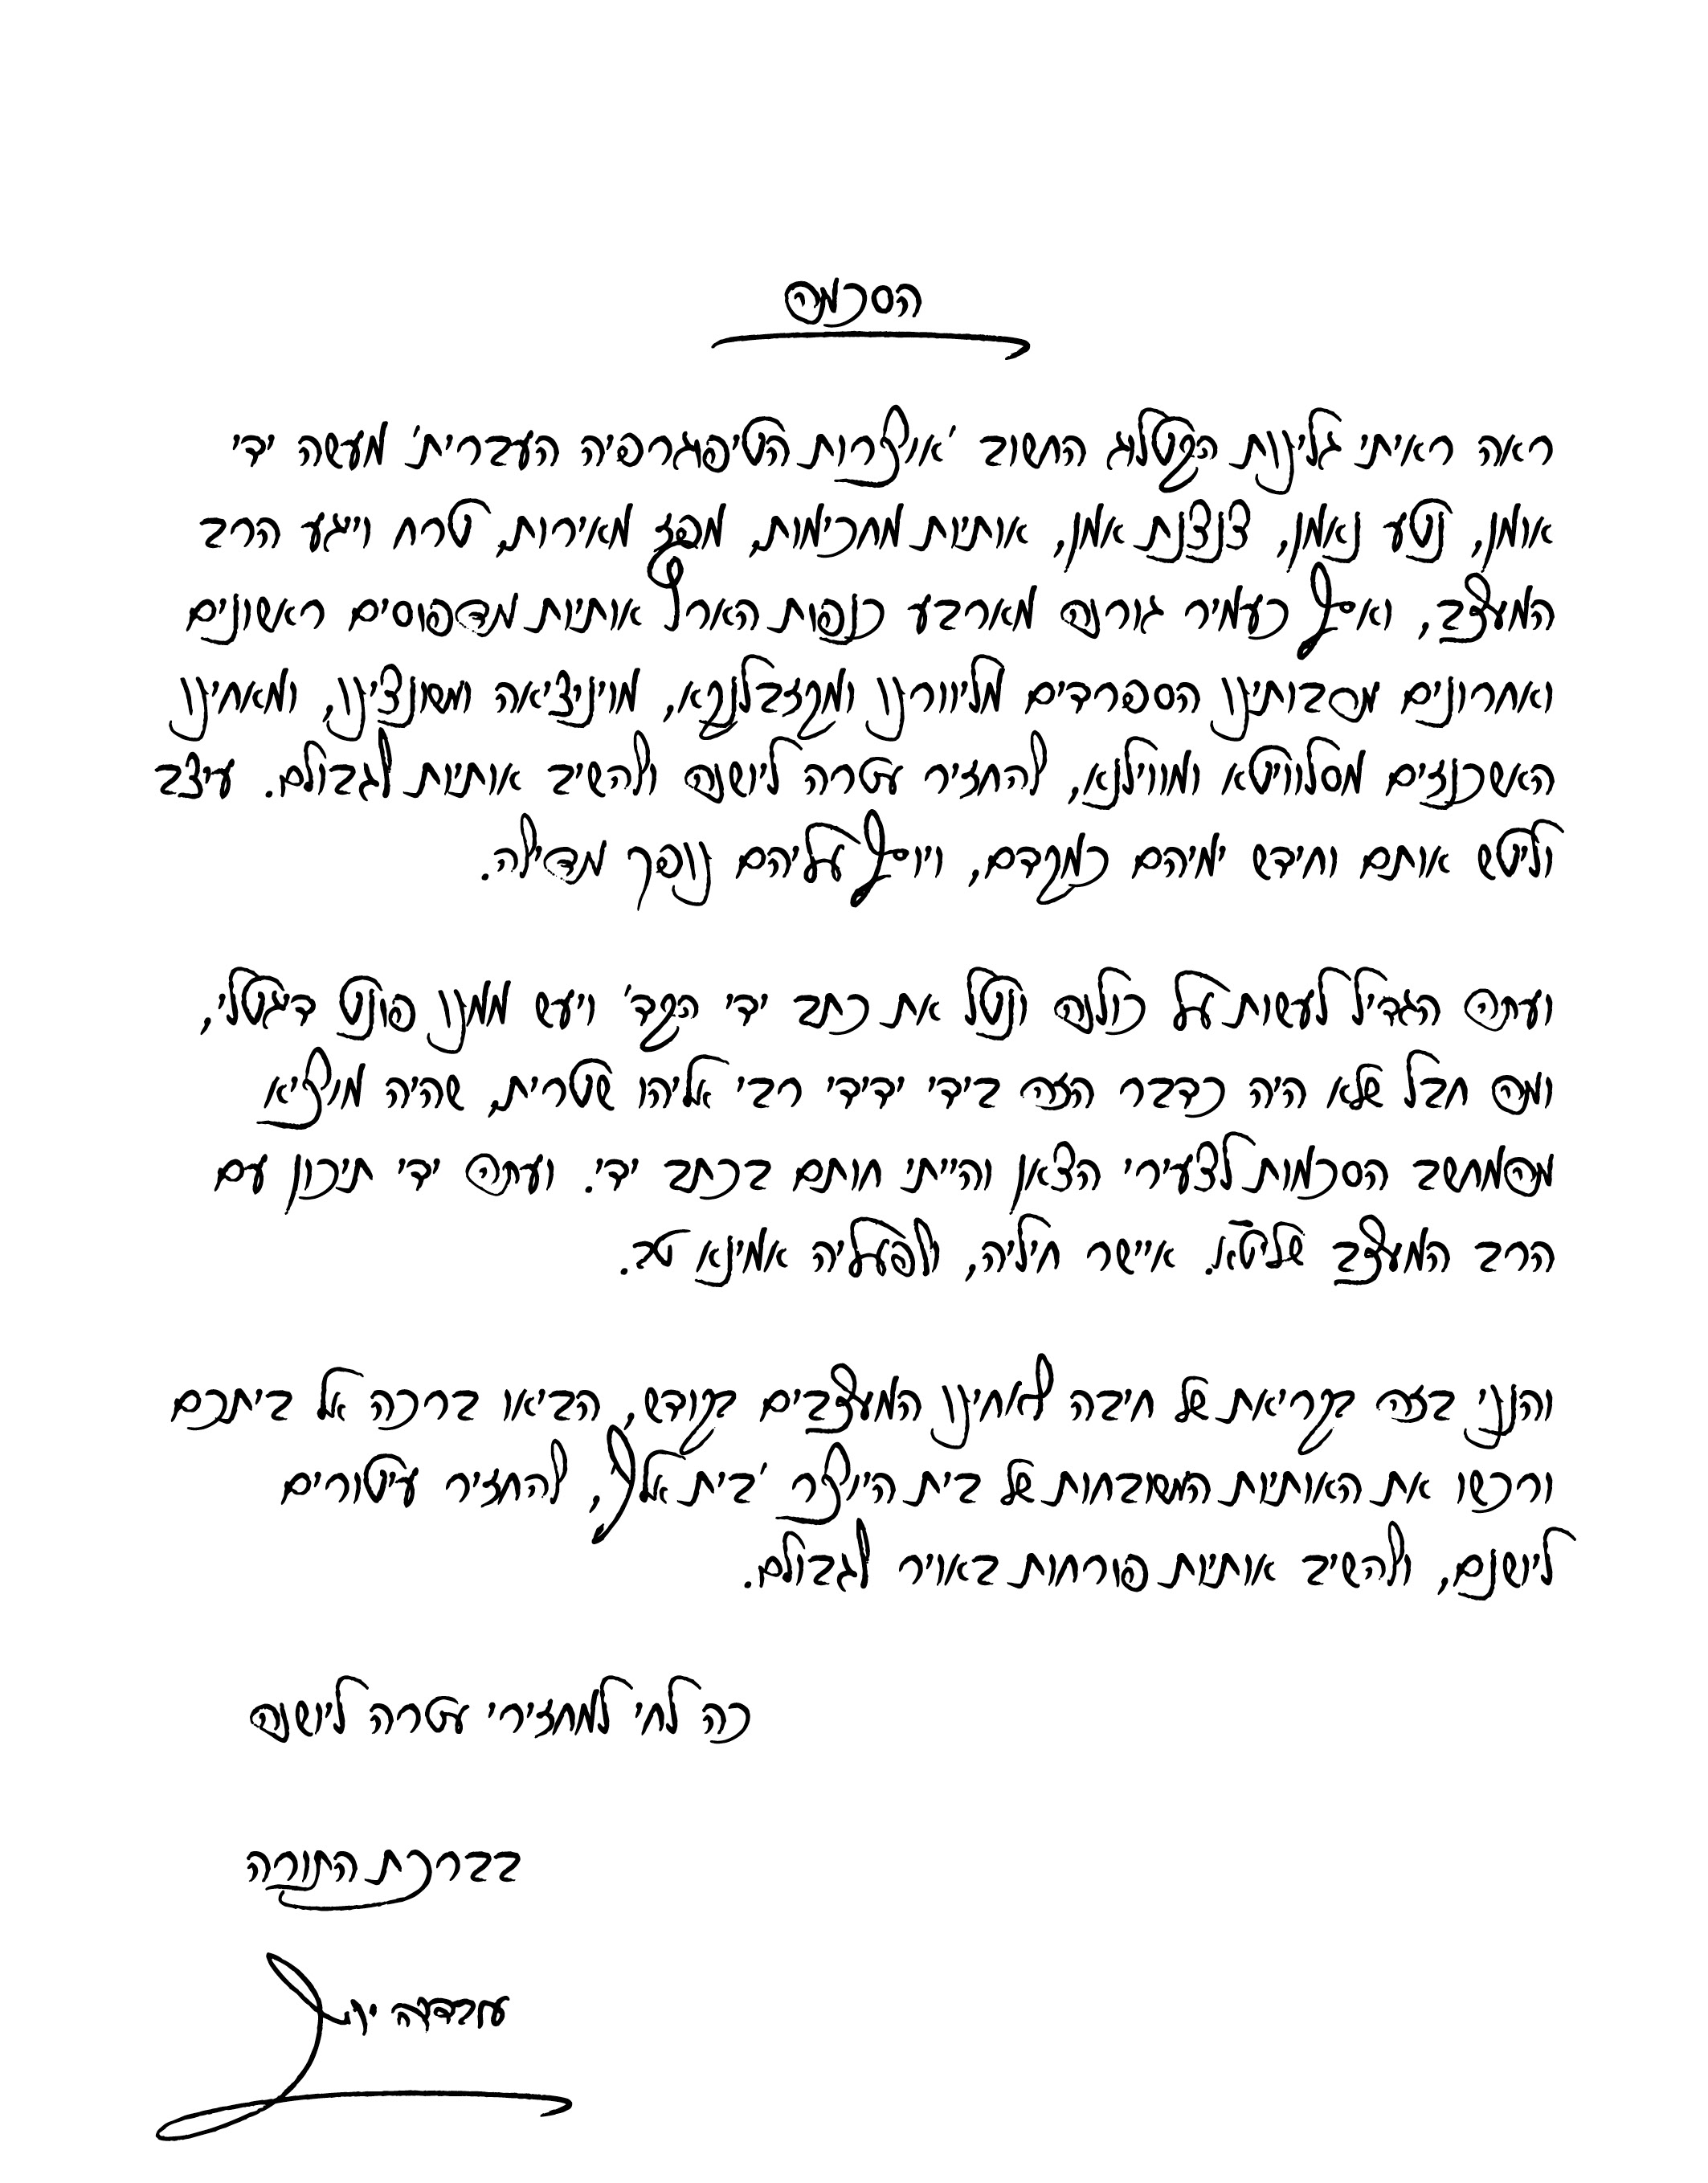 הסכמה
ראה ראיתי גלינות הקטלוג החשוב 'אוצרות הטיפוגרפיה העברית' מעשה ידי
אומן, נטע נאמן, צנצנת אמן, אותיות מחכימות, מפז מאירות, טרח וייגע הרב
המעצב, ואסף כעמיר גורנה מארבע כנפות הארץ אותיות מדפוסים ראשונים
ואחרונים מסבותינו הספרדים מליוורנו ומקזבלנקא, מויניציאה ומשונצינו, ומאחינו
האשכנזים מסלוויטא ומווילנא, להחזיר עטרה ליושנה ולהשיב אותיות לגבולם. עיצב
וליטש אותם וחידש ימיהם כמקדם, ויוסף עליהם נופך מדילה.
ועתה הגדיל לעשות על כולנה ונטל את כתב ידי הקד' ויעש ממנו פונט דיגטלי,
ומה חבל שלא היה כדבר הזה בידי ידידי רבי אליהו שטרית, שהיה מוציא
מהמחשב הסכמות לצעירי הצאן והייתי חותם בכתב ידי. ועתה ידי תיכון עם
הרב המעצב שליטא. איישר חיליה, ולפעליה אמינא טב.
והנני בזה בקריאת של חיבה לאחינו המעצבים בקודש, הביאו ברכה אל ביתכם
ורכשו את האותיות המשובחות של בית היוצר 'בית אלף', להחזיר עיטורים
ליושנם, ולהשיב אותיות פורחות באויר לגבולם.
כה לחי למחזירי עטרה ליושנה
בברכת התורה
עובדיה יוסף